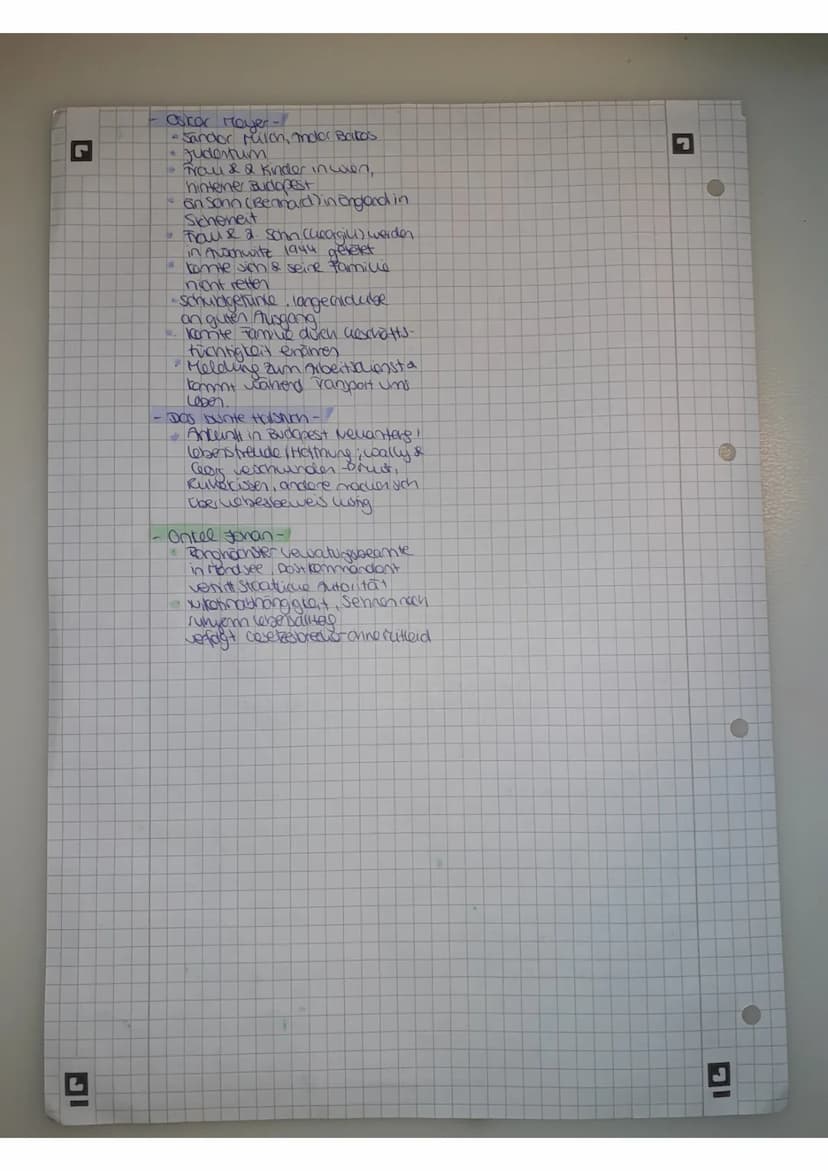 - Oskar Meyer -
Sandor Milch, Indor Bakos
Judentum
Frau & 2 Kinder in Wien,
hinterher Budapest
ein Sohn (Bernhard) in England in
Sicherheit
Frau & 2. Sohn (Georgili) werden
in Auschwitz 1944 getötet
konnte sich & seine Familie
nicht retten
Schuldgefühle, lange Glaube
an guten Ausgang
konnte Familie durch Geschäfts-
tüchtigkeit ernähren
Meldung zum Arbeitsdienst &
kommt während Transport ums
Leben.
- Das bunte Halstuch -
Ankunft in Budapest Neuanfang,
Lebensfreude / Hoffnung; Wally &
Georg verschwinden
andere machen sich
- Onkel Johan -
Ranghöchster Verwaltungsbeamte
in Mondsee, Postkommandant
vertritt Staatliche Autorität
Sehnen nach
ruhigem Lebensalltag
verfolgt Gesetzesbrecher ohne Mitleid